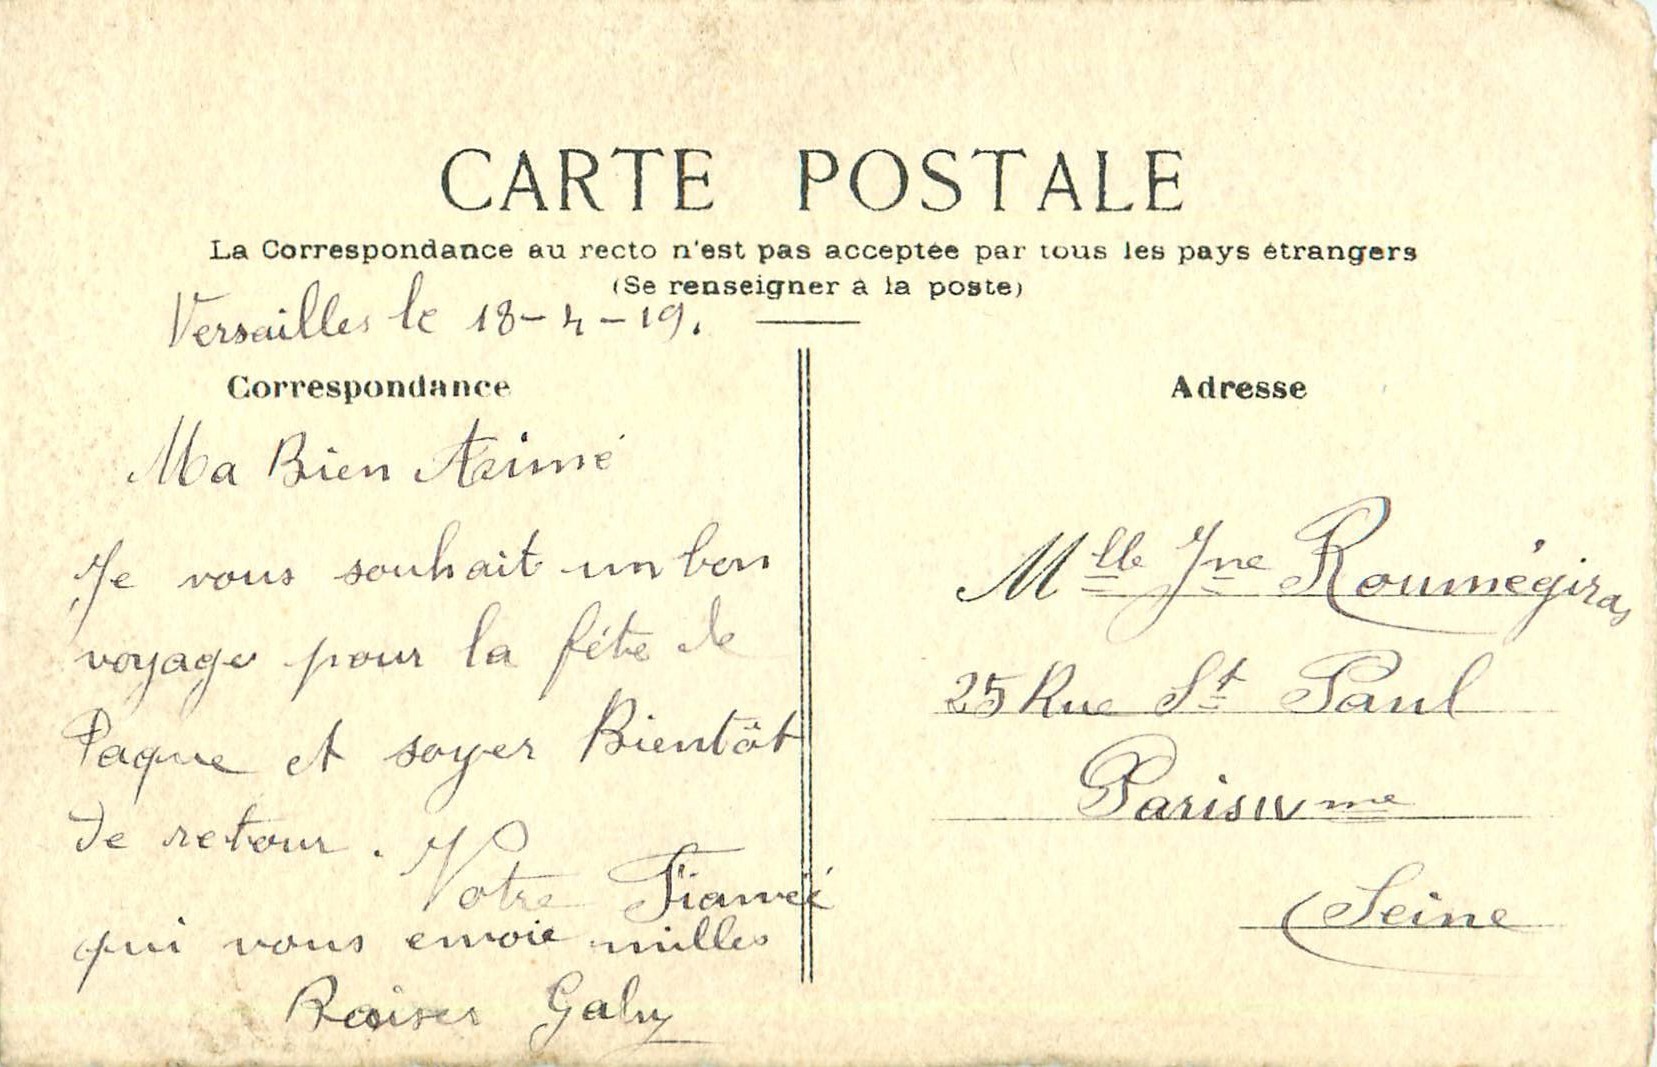 CARTE POSTALE
La Correspondance au recto n'est pas acceptée par tous les pays étrangers
(Se renseigner à la poste)
Versailles le 18-4-19.
Correspondance
Ma Bien Aeimé
Je vous souhait un bon
voyage pour la féte de
Paque et soyer Bientôt
de retour. Votre Fianceé
qui vous envoie milles
Baiser Gaby
Adresse
Mlle Jne Roumégiras
25 Rue St Paul
Paris IV me
(Seine